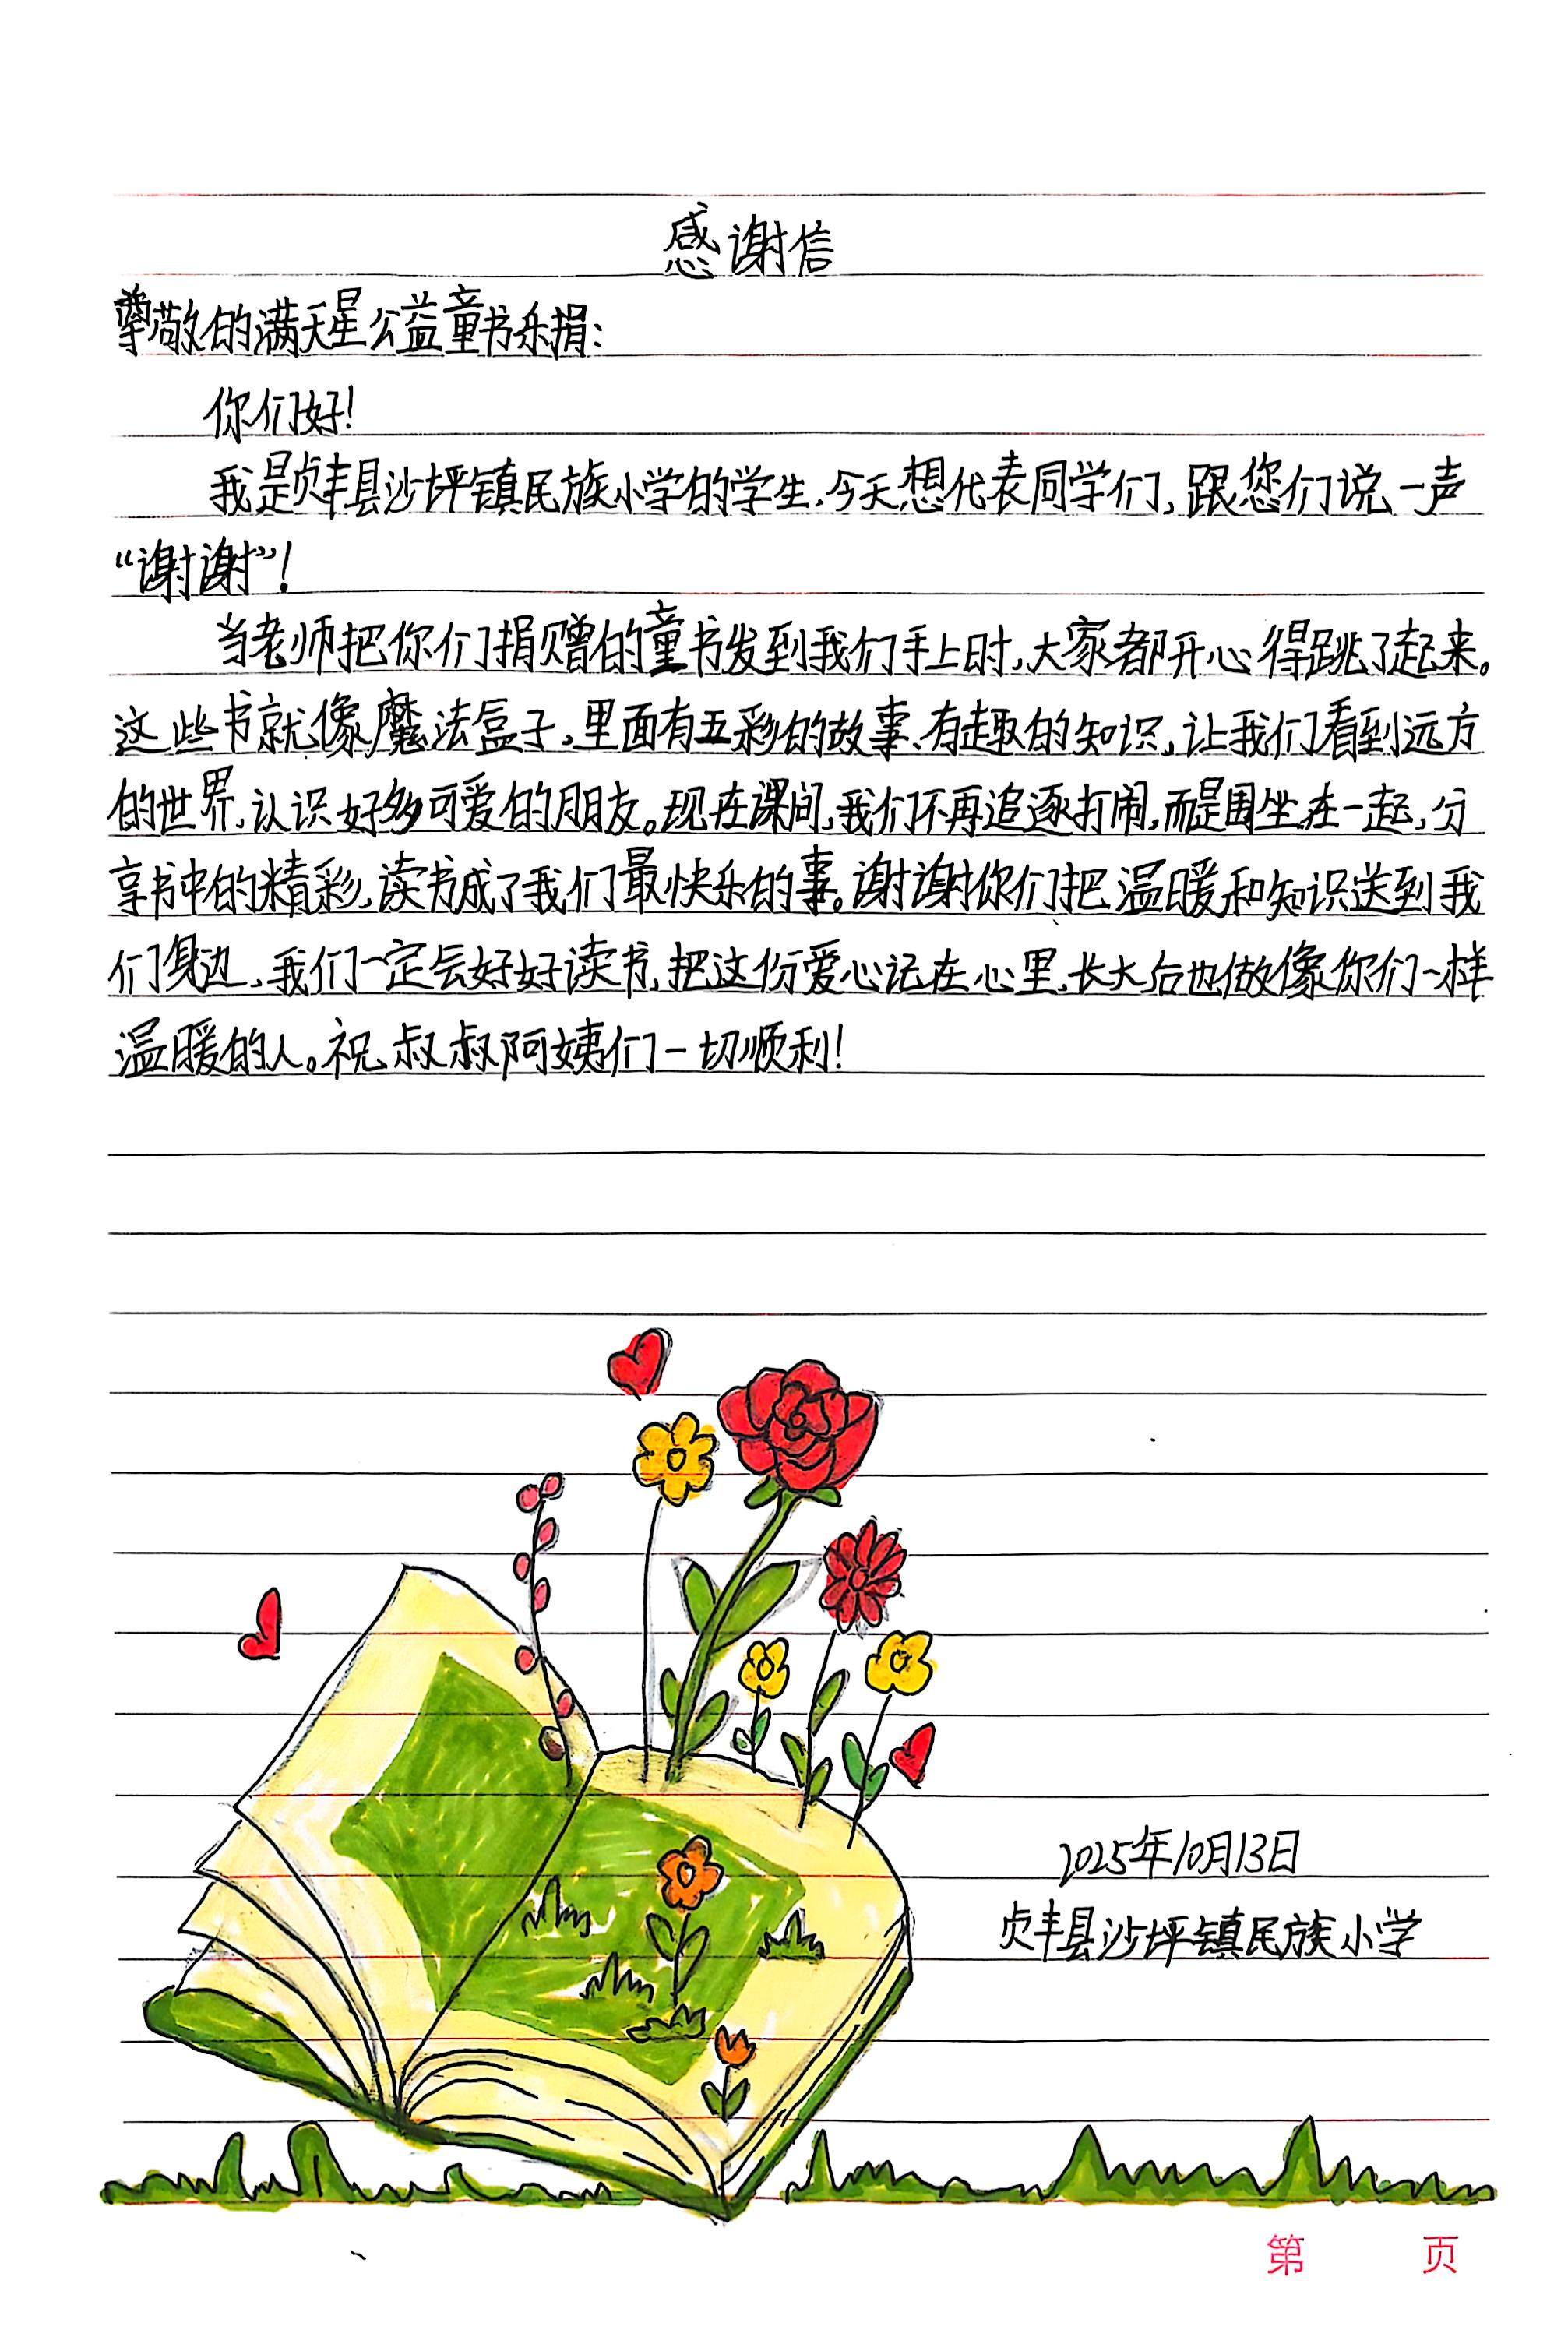 感谢信
尊敬的满天星公益童书乐捐：
你们好！
我是贞丰县沙坪镇民族小学的学生，今天想代表同学们，跟您们说一声
“谢谢”！
当老师把你们捐赠的童书发到我们手上时，大家都开心得跳了起来。
这些书就像魔法盒子，里面有五彩的故事、有趣的知识，让我们看到远方
的世界，认识好多可爱的朋友。现在课间，我们不再追逐打闹，而是围坐在一起，分
享书中的精彩，读书成了我们最快乐的事。谢谢你们把温暖和知识送到我
们身边，我们一定会好好读书，把这份爱心记在心里，长大后也做像你们一样
温暖的人。祝叔叔阿姨们一切顺利！
2025年10月13日
贞丰县沙坪镇民族小学
第 页